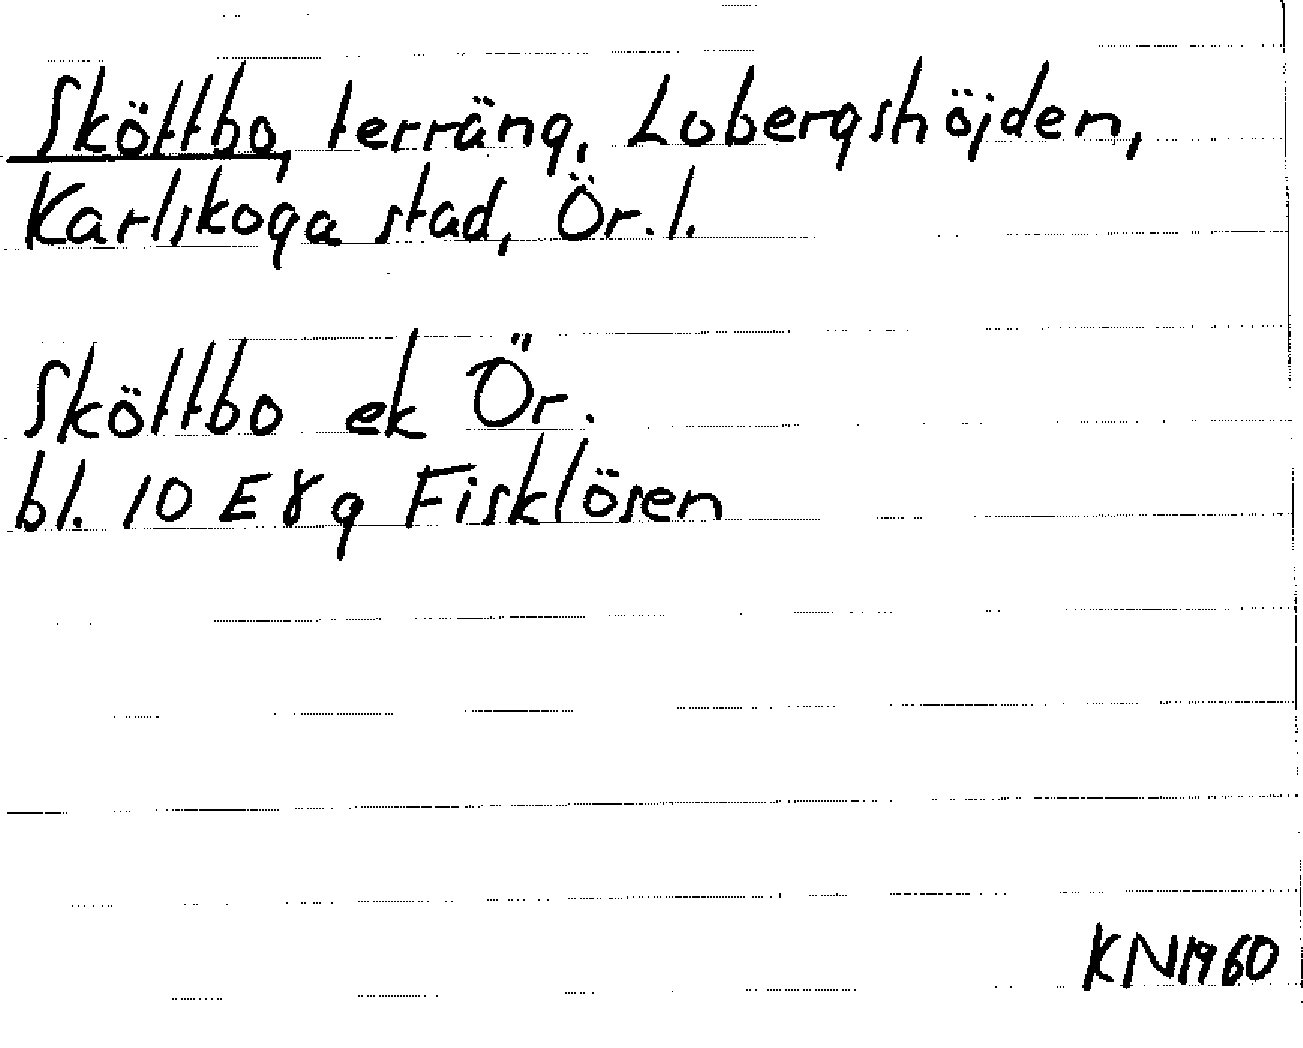 Sköttbo, terräng, Lobergshöjden,
Karlskoga stad, Ör. l.
Sköttbo ek Ör.
bl. 10 E 8 g Fisklösen
KN 1960